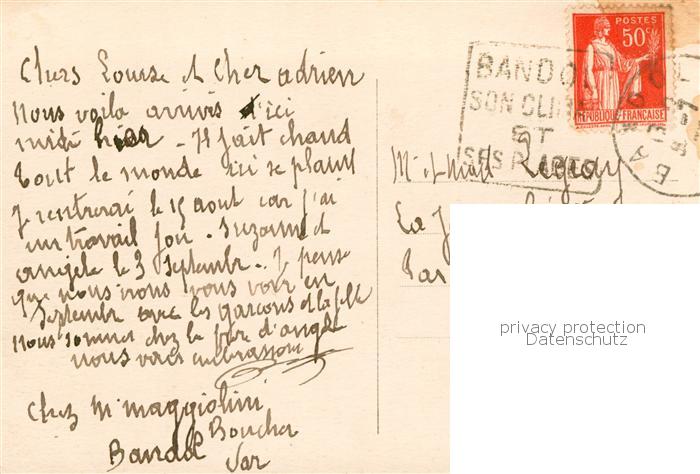 Chers Louise et Cher adrien
Nous voila arrivés d'ici
midi hier - Il fait chaud
tout le monde ici se plaint
Je rentrerai le 15 aout car j'ai
un travail fou. Suzanne et
angele le 3 septembre. Je pense
que nous irons vous voir en
septembre avec les garcons et la fille
nous sommes chez le frère d'angele
nous vous embrassons
Chez Mr maggiolini
Boucher
Bandol
Var
POSTES
50c
REPUBLIQUE-FRANCAISE
BANDOL
SON CLIM
ET
SES PLAGES
Mr et Mme Legray
La
Par
privacy protection
Datenschutz